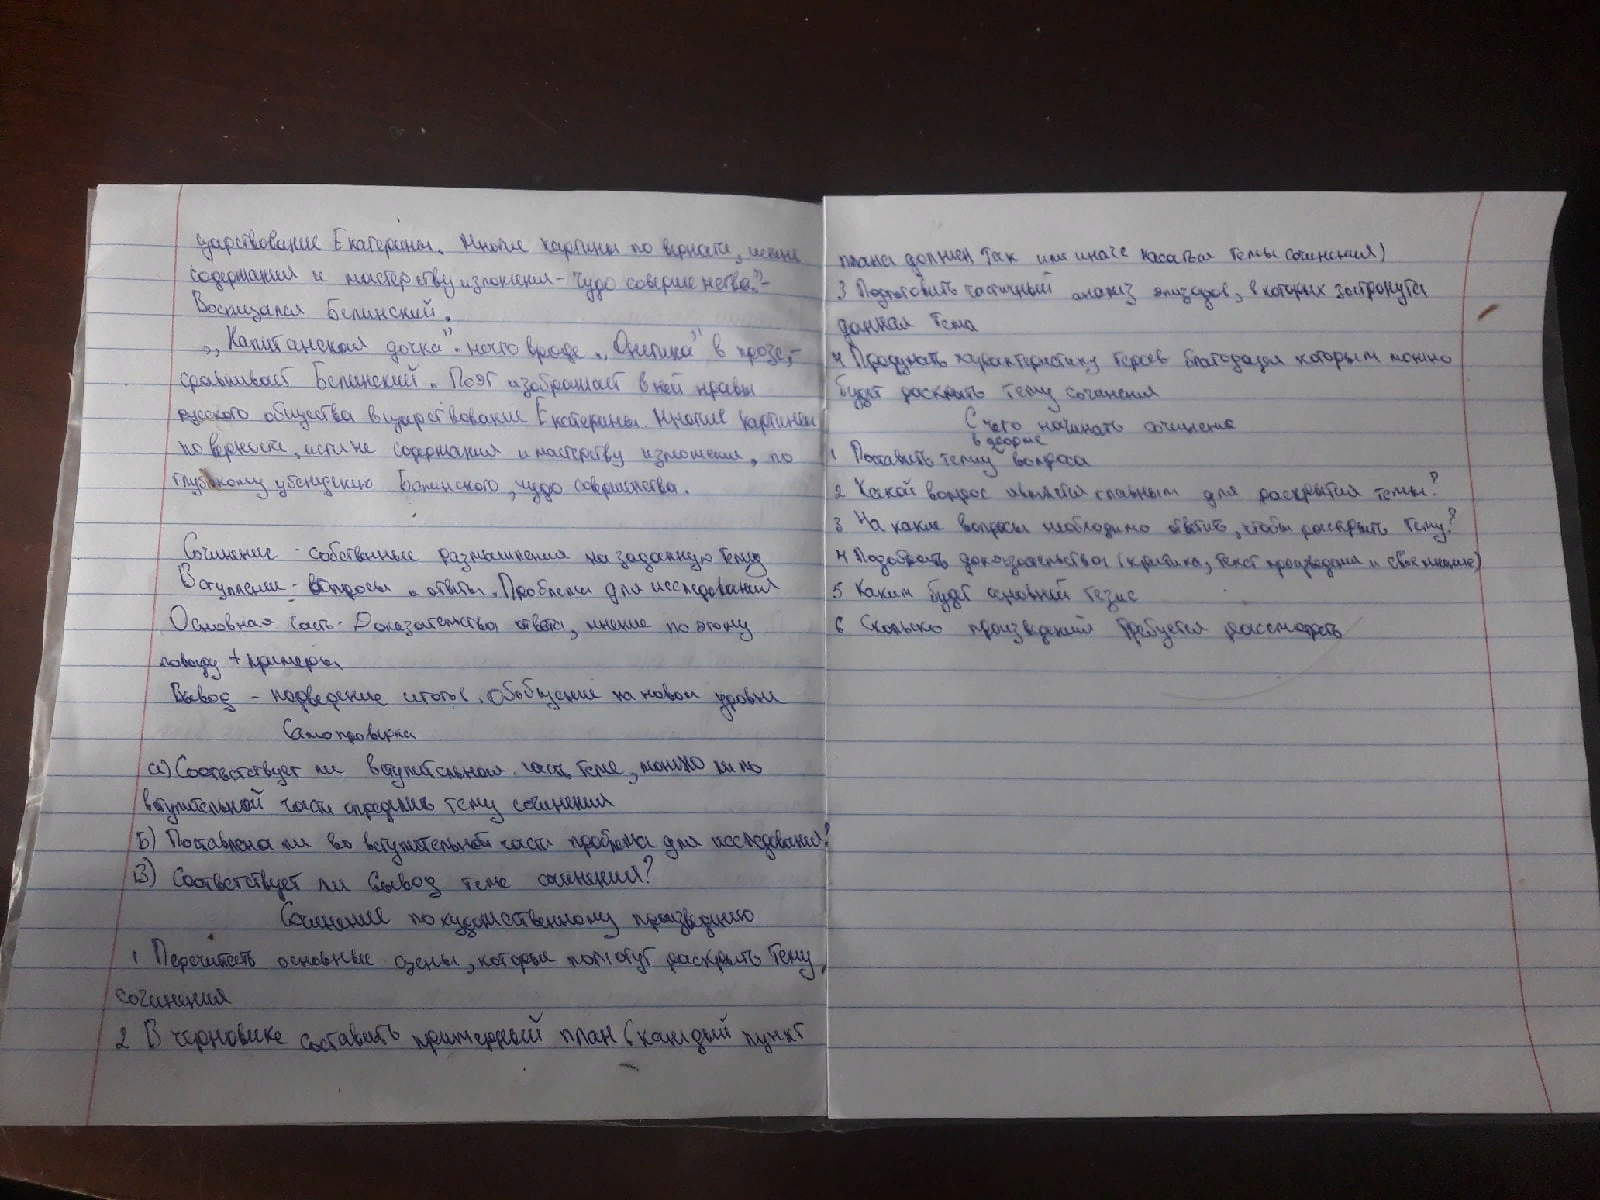 дарствование Екатерины. Многие картины по верности, истине
содержания и мастерству изложения - чудо совершенства."-
Восхищался Белинский.
„Капитанская дочка" - нечто вроде „Онегина" в прозе,-
сравнивает Белинский. Поэт изображает в ней нравы
русского общества в царствование Екатерины. Многие картины
по верности, истине содержания и мастерству изложения, по
глубокому убеждению Белинского, чудо совершенства.
Сочинение - собственные размышления на заданную тему
Вступление - вопросы и ответы. Проблема для исследования
Основная часть - Доказательства ответа, мнение по этому
поводу + примеры
Вывод - подведение итогов. Обобщение на новом уровне
Самопроверка
а) Соответствует ли вступительная часть теме, можно ли по
вступительной части определить тему сочинения
Б) Поставлена ли во вступительной части проблема для исследования?
В) Соответствует ли вывод теме сочинения?
Сочинение по художественному произведению
1 Перечитать основные сцены, которые помогут раскрыть тему
сочинения
2 В черновике составить примерный план (каждый пункт
плана должен так или иначе касаться темы сочинения)
3 Подготовить частичный анализ эпизодов, в которых затронута
данная тема
4 Продумать характеристику героев благодаря которым можно
будет раскрыть тему сочинения
С чего начинать сочинение
1 Поставить тему в форме вопроса
2 Какой вопрос является главным для раскрытия темы?
3 На какие вопросы необходимо ответить, чтобы раскрыть тему?
4 Подобрать доказательства (критика, текст произведения и свое мнение)
5 Каким будет основной тезис
6 Сколько произведений требуется рассмотреть